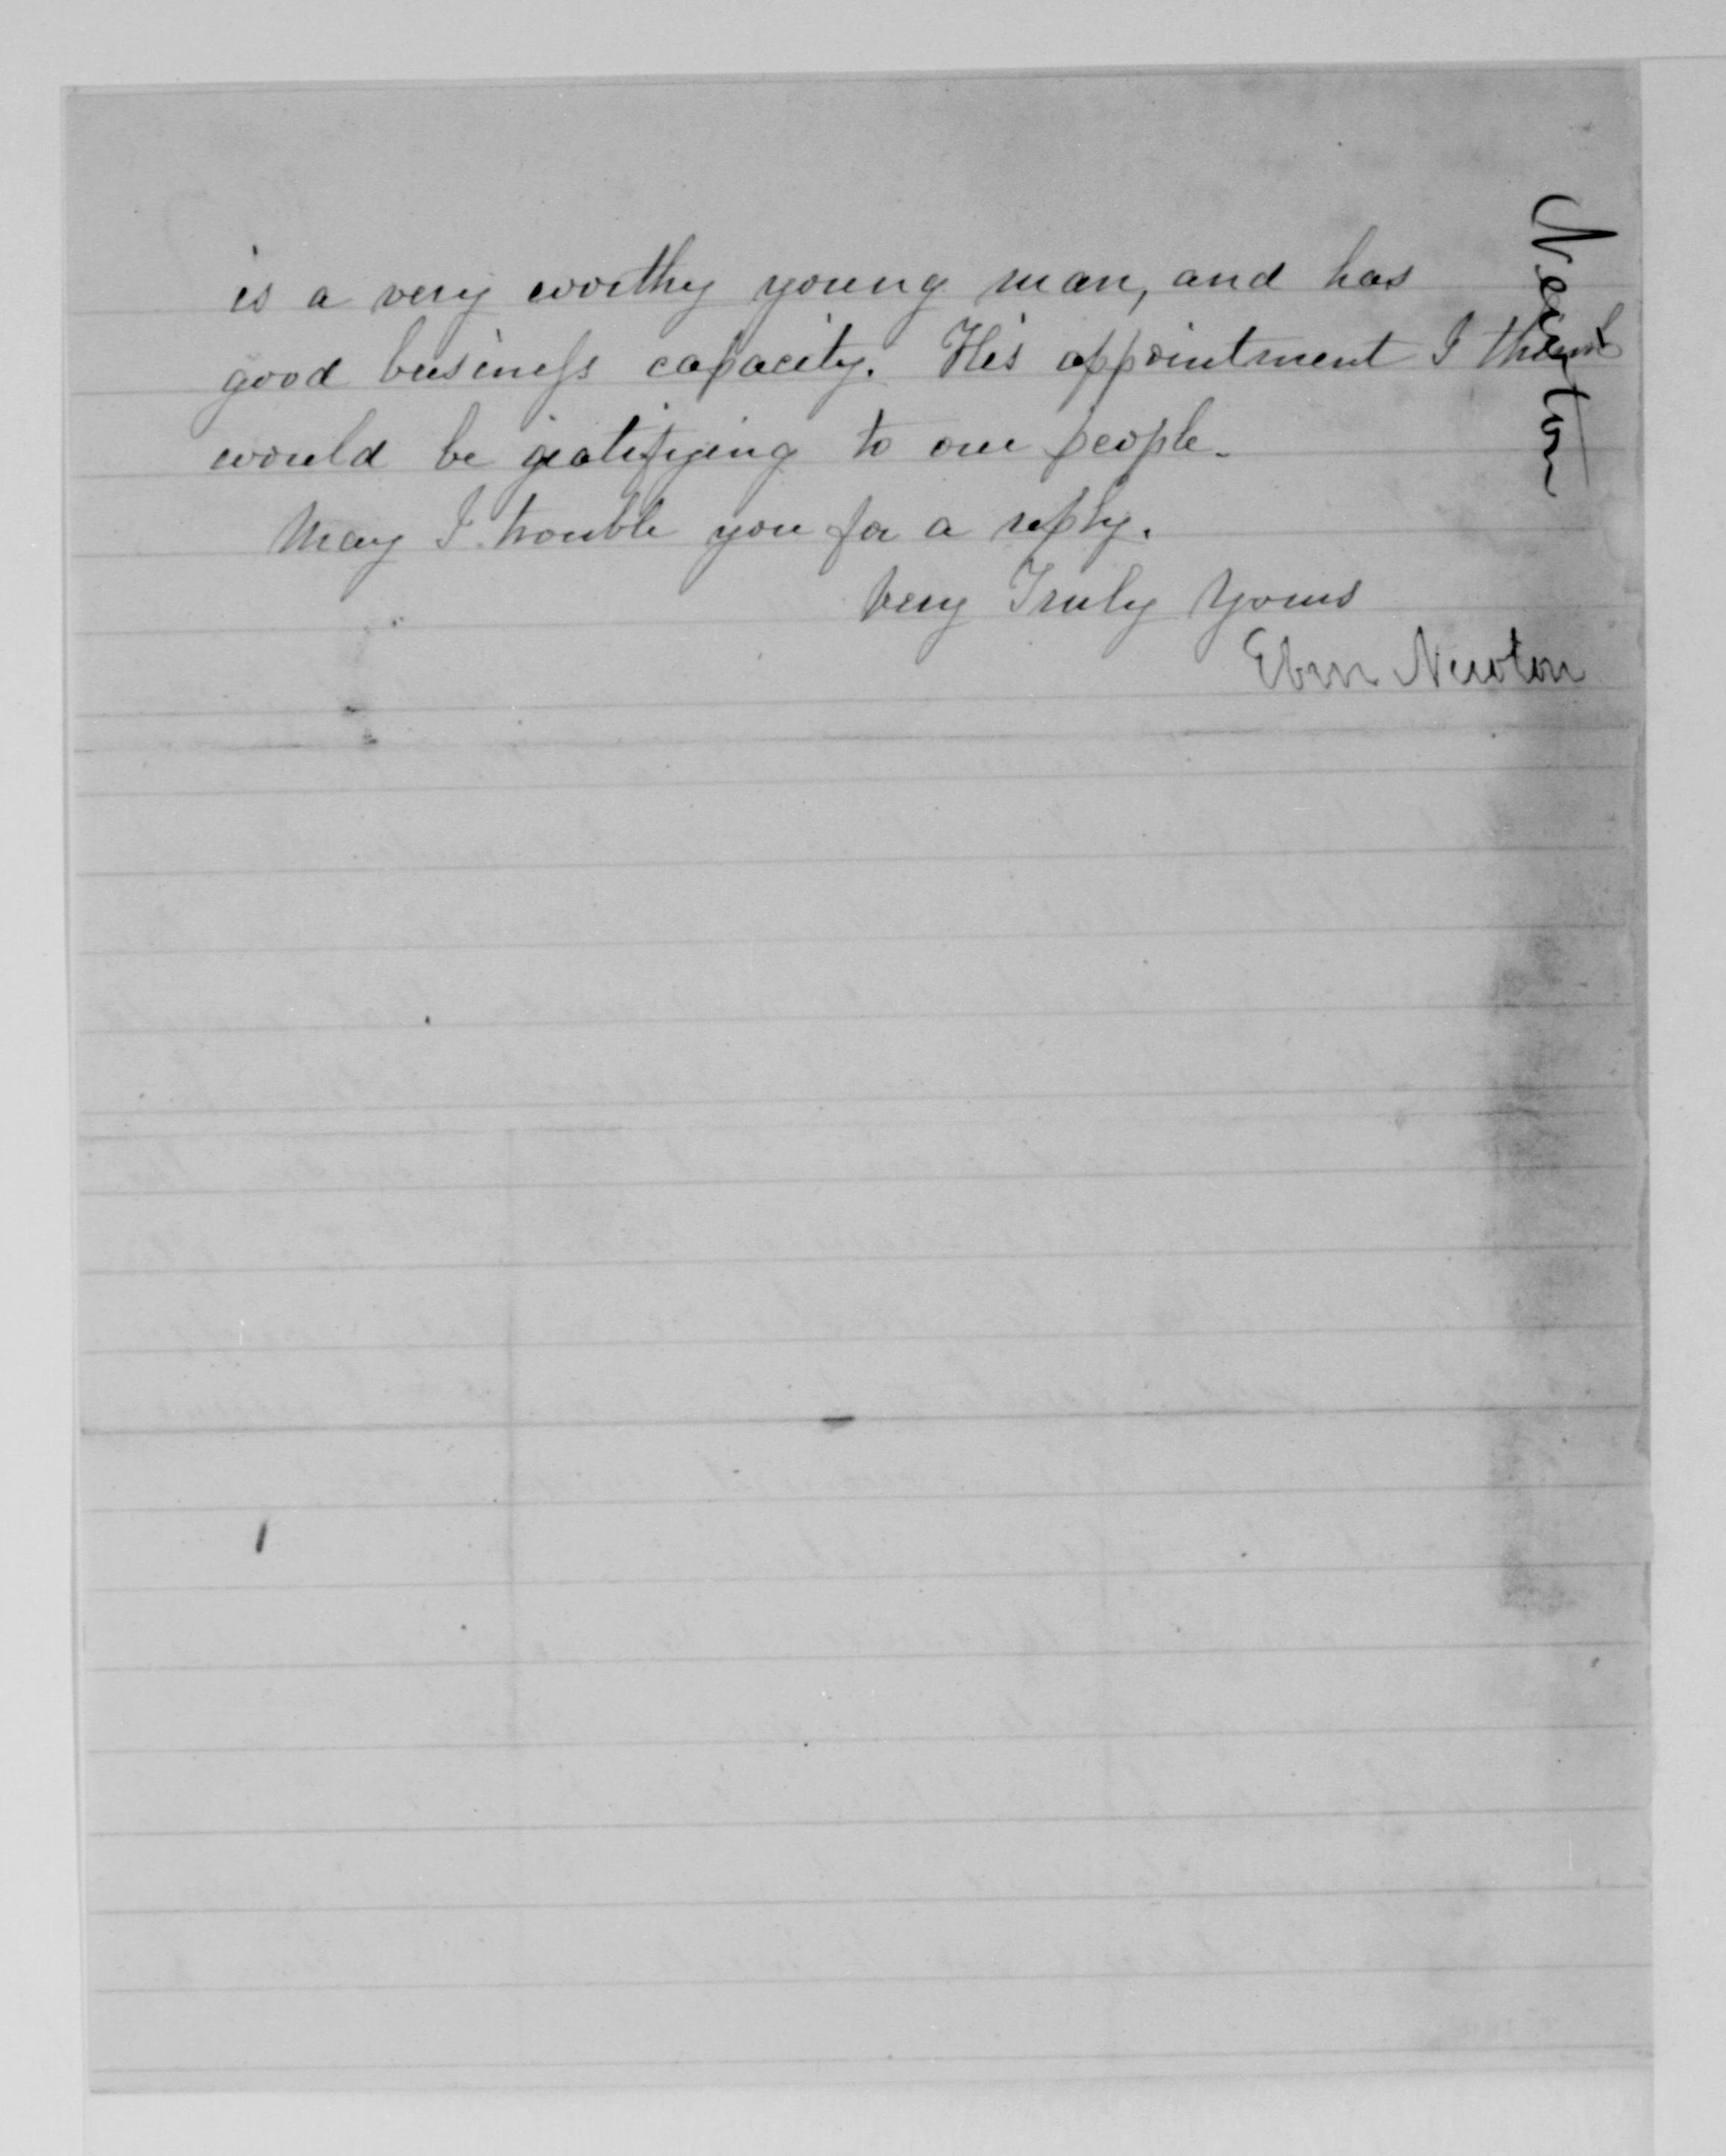 is a very worthy young man, and has
good business capacity. His appointment I think
would be gratifying to our people.
May I trouble you for a reply.
Very Truly Yours
Eben Newton
Newton